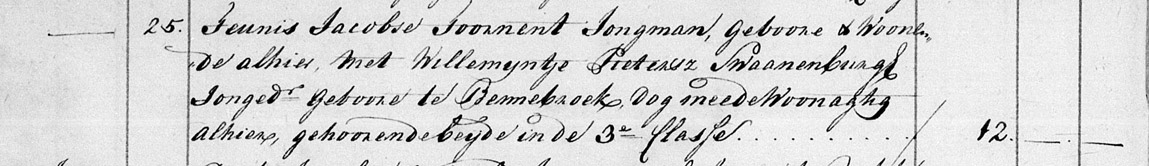 25. Teunis Jacobse Toornent Jongman, Geboore & Woonen„
„de alhier, Met Willemyntje Pietersz Swaanenburgh
Jongedr Geboore te Bennebroek, dog meede Woonagtig
alhier, gehoorende beyde in de 3e Classe. . . . . . . . . / 12. — . —